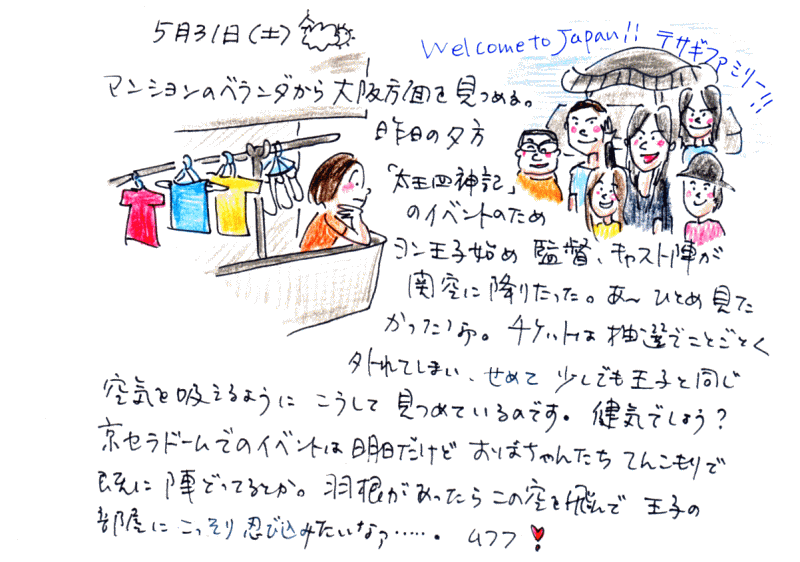 5月31日(土)
Welcome to Japan!! テサギファミリー!!
マンションのベランダから大阪方面を見つめる。
昨日の夕方
「太王四神記」
のイベントのため
ヨン王子始め 監督、キャスト陣が
関空に降りたった。あ〜 ひとめ見た
かったなぁ。チケットは抽選でことごとく
外れてしまい、せめて 少しでも王子と同じ
空気を吸えるように こうして 見つめているのです。健気でしょう?
京セラドームでのイベントは明日だけど おばちゃんたち てんこもりで
既に 陣どってるとか。羽根があったらこの空を飛んで 王子の
部屋に こっそり忍び込みたいなァ……。ムフフ